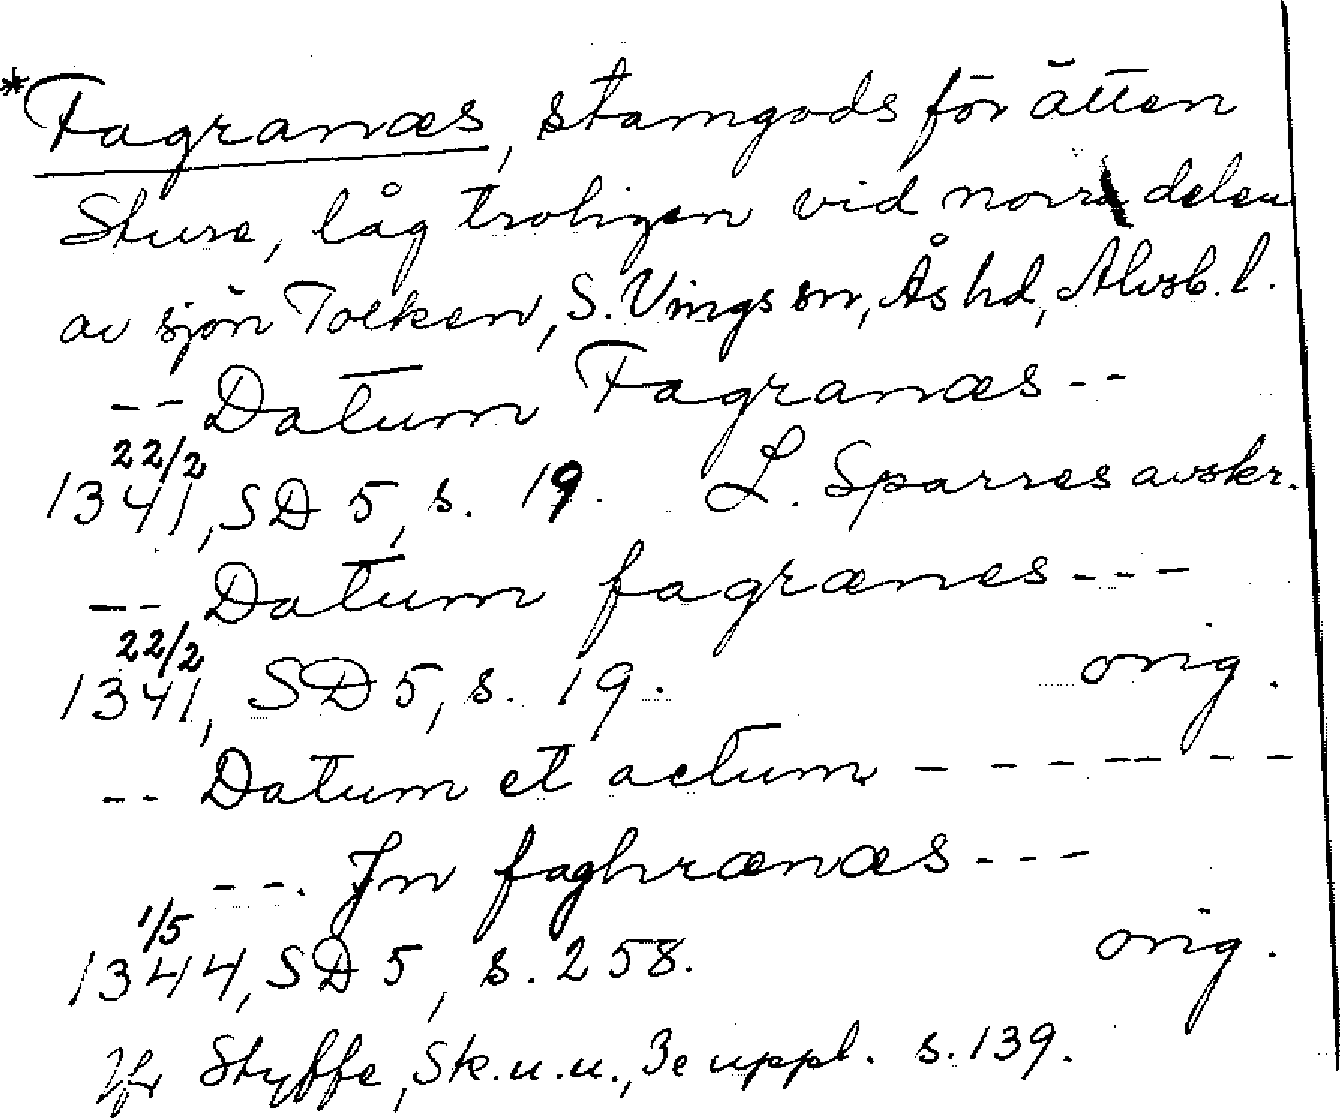 *Fagranæs, stamgods för ätten
Sture, låg troligen vid norra delen
av sjön Tolken, S. Vings sn, Ås hd, Älvsb. l.
-- Datum Fagranæs --
22/2
1341, SD 5, s. 19. L. Sparres avskr.
-- Datum fagrænes ---
22/2
1341, SD 5, s. 19. orig.
-- Datum et actum - - - -- - -
--. Jn faghrænæs ---
1/5
1344, SD 5, s. 258. orig.
Jfr Styffe, Sk. u. u., 3e uppl. s. 139.